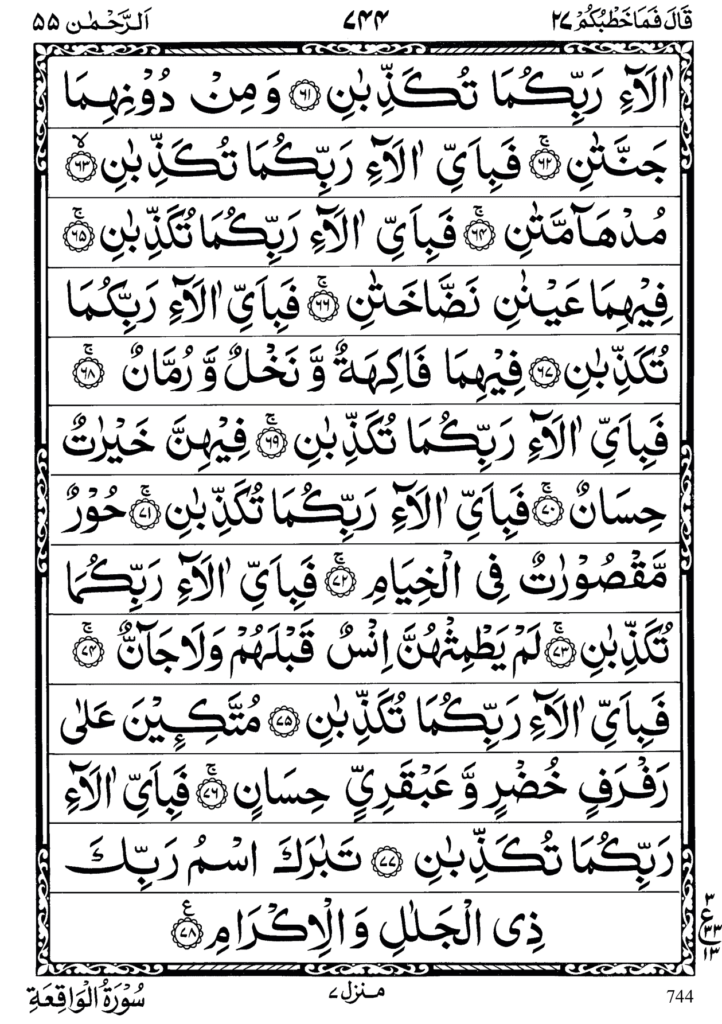 قَالَ فَمَا خَطْبُكُمْ ٢٧ ٧٤٤ اَلرَّحْمٰن ٥٥
اٰلَآءِ رَبِّكُمَا تُكَذِّبٰنِ ﴿٦١﴾ وَمِنْ دُوْنِهِمَا
جَنَّتٰنِ ۚ﴿٦٢﴾ فَبِاَيِّ اٰلَآءِ رَبِّكُمَا تُكَذِّبٰنِ ۙ﴿٦٣﴾
مُدْهَآمَّتٰنِ ۚ﴿٦٤﴾ فَبِاَيِّ اٰلَآءِ رَبِّكُمَا تُكَذِّبٰنِ ۚ﴿٦٥﴾
فِيْهِمَا عَيْنٰنِ نَضَّاخَتٰنِ ۚ﴿٦٦﴾ فَبِاَيِّ اٰلَآءِ رَبِّكُمَا
تُكَذِّبٰنِ ﴿٦٧﴾ فِيْهِمَا فَاكِهَةٌ وَّ نَخْلٌ وَّ رُمَّانٌ ۚ﴿٦٨﴾
فَبِاَيِّ اٰلَآءِ رَبِّكُمَا تُكَذِّبٰنِ ۚ﴿٦٩﴾ فِيْهِنَّ خَيْرٰتٌ
حِسَانٌ ۚ﴿٧٠﴾ فَبِاَيِّ اٰلَآءِ رَبِّكُمَا تُكَذِّبٰنِ ۚ﴿٧١﴾ حُوْرٌ
مَّقْصُوْرٰتٌ فِى الْخِيَامِ ۚ﴿٧٢﴾ فَبِاَيِّ اٰلَآءِ رَبِّكُمَا
تُكَذِّبٰنِ ۚ﴿٧٣﴾ لَمْ يَطْمِثْهُنَّ اِنْسٌ قَبْلَهُمْ وَلَا جَآنٌّ ۚ﴿٧٤﴾
فَبِاَيِّ اٰلَآءِ رَبِّكُمَا تُكَذِّبٰنِ ﴿٧٥﴾ مُتَّكِـِٕيْنَ عَلٰى
رَفْرَفٍ خُضْرٍ وَّ عَبْقَرِيٍّ حِسَانٍ ۚ﴿٧٦﴾ فَبِاَيِّ اٰلَآءِ
رَبِّكُمَا تُكَذِّبٰنِ ﴿٧٧﴾ تَبٰرَكَ اسْمُ رَبِّكَ
ذِى الْجَلٰلِ وَالْاِكْرَامِ ﴿٧٨﴾ع
٣
ع
٣٣
١٣
744 منزل ٧ سُوْرَةُ الْوَاقِعَةِ